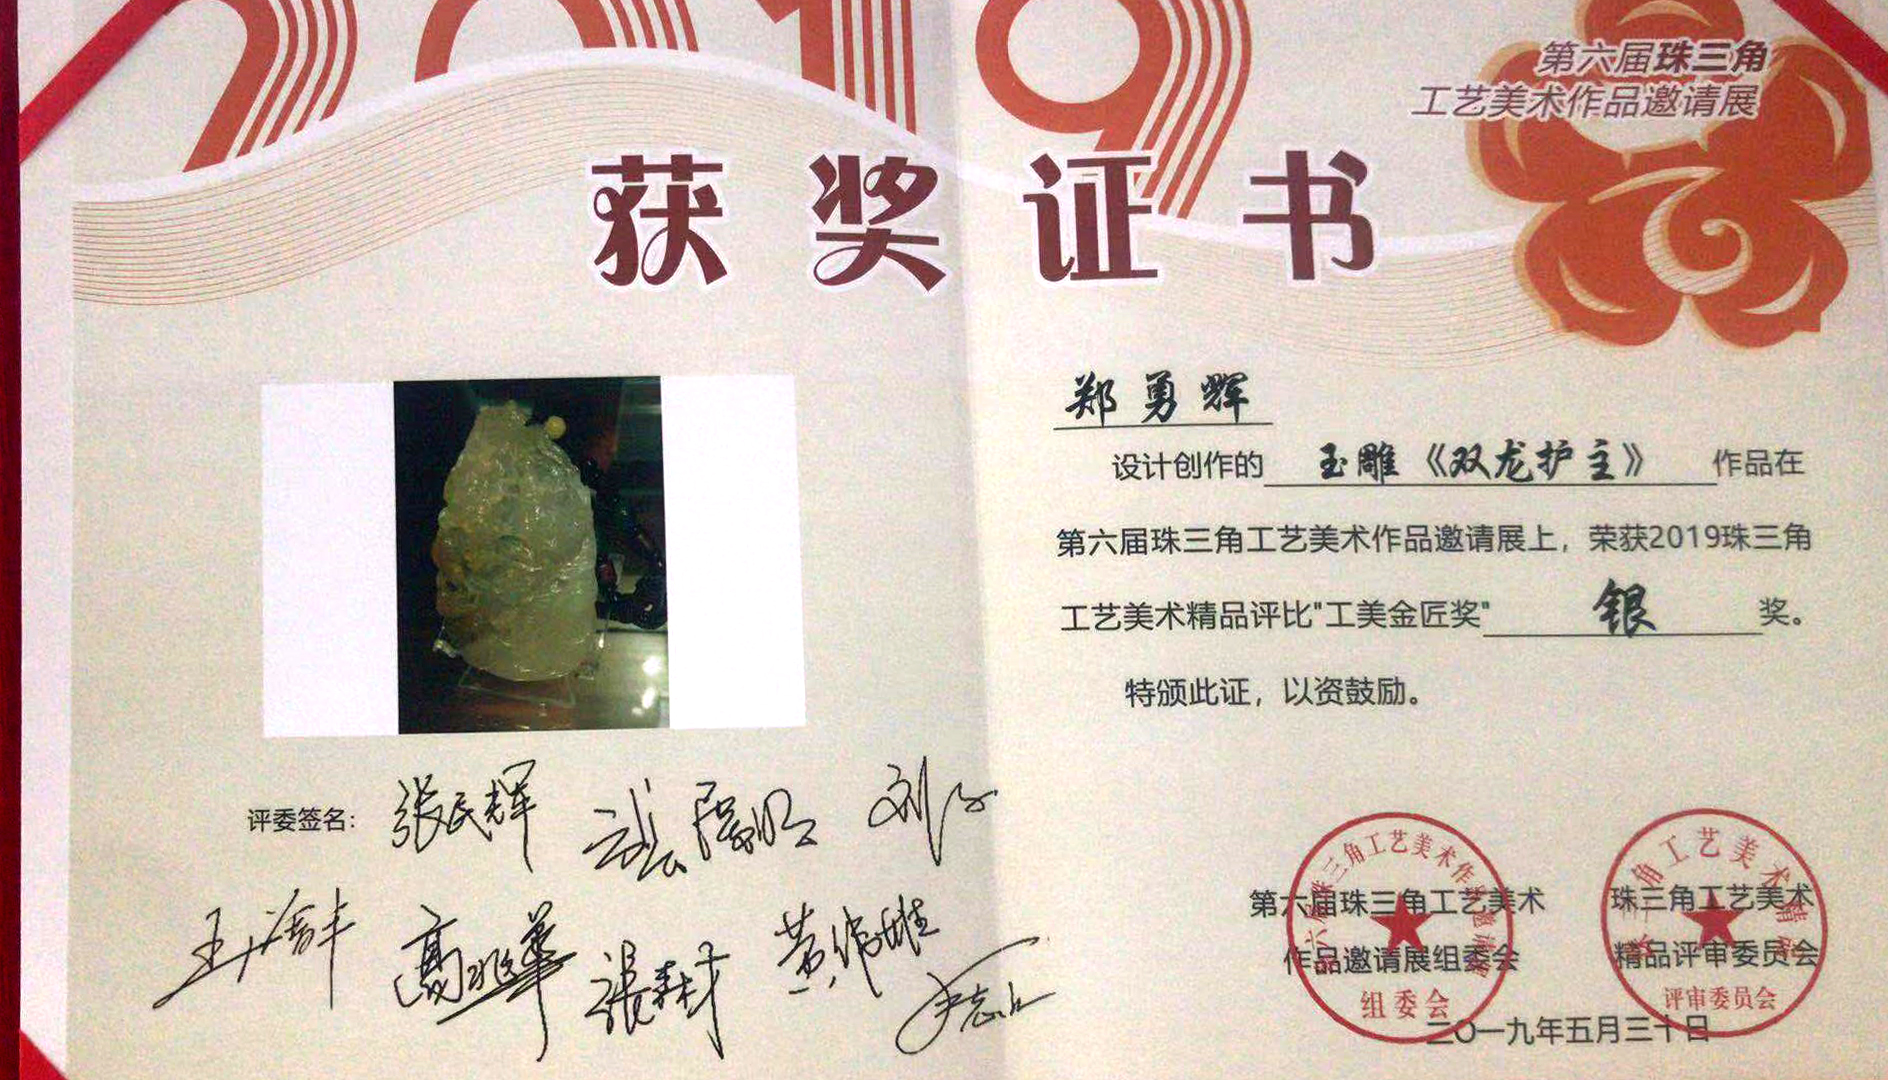 2019
第六届珠三角
工艺美术作品邀请展
获奖证书
郑勇辉
设计创作的 玉雕《双龙护主》 作品在
第六届珠三角工艺美术作品邀请展上，荣获2019珠三角
工艺美术精品评比"工美金匠奖" 银 奖。
特颁此证，以资鼓励。
评委签名：张民辉
高兆华
黄伟雄
第六届珠三角工艺美术
作品邀请展组委会
组委会
珠三角工艺美术
精品评审委员会
评审委员会
二〇一九年五月三十日